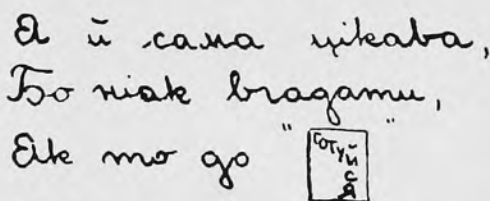 А й сама цікава,
Бо ніяк вгадати,
Як то до "ГОТУЙСЯ"